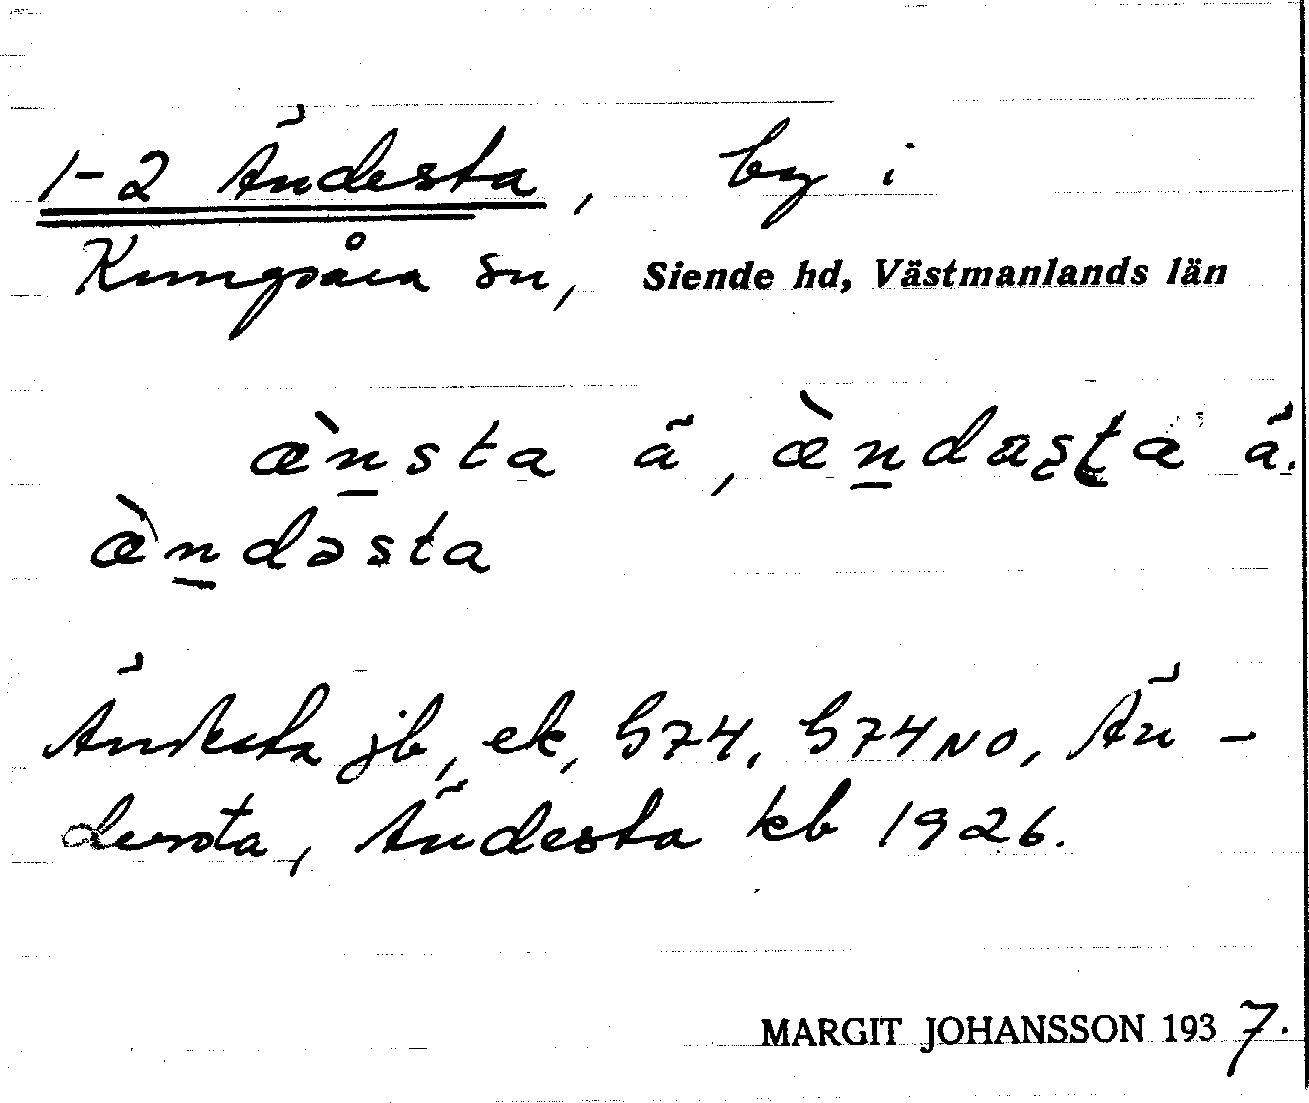 1-2 Ändesta, by i
Kungsåra sn, Siende hd, Västmanlands län
æ̀n̲sta ä, æ̀n̲daʂʈa ä.
æ̀n̲dəsta
Ändesta jb, ek, G74, G74NO, Än-
dersta, Ändesta kb 1926.
MARGIT JOHANSSON 1937.